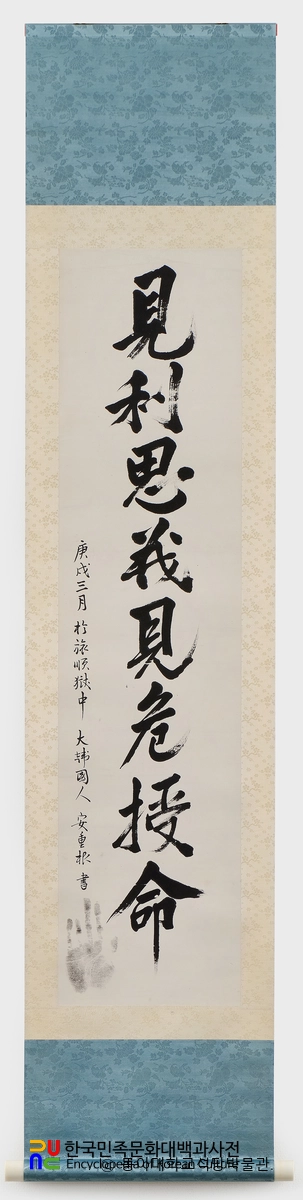 見利思義見危授命
庚戌三月 於旅順獄中 大韓國人 安重根 書
한국민족문화대백과사전
Encyclopedia of Korean Culture
동아대학교석당박물관